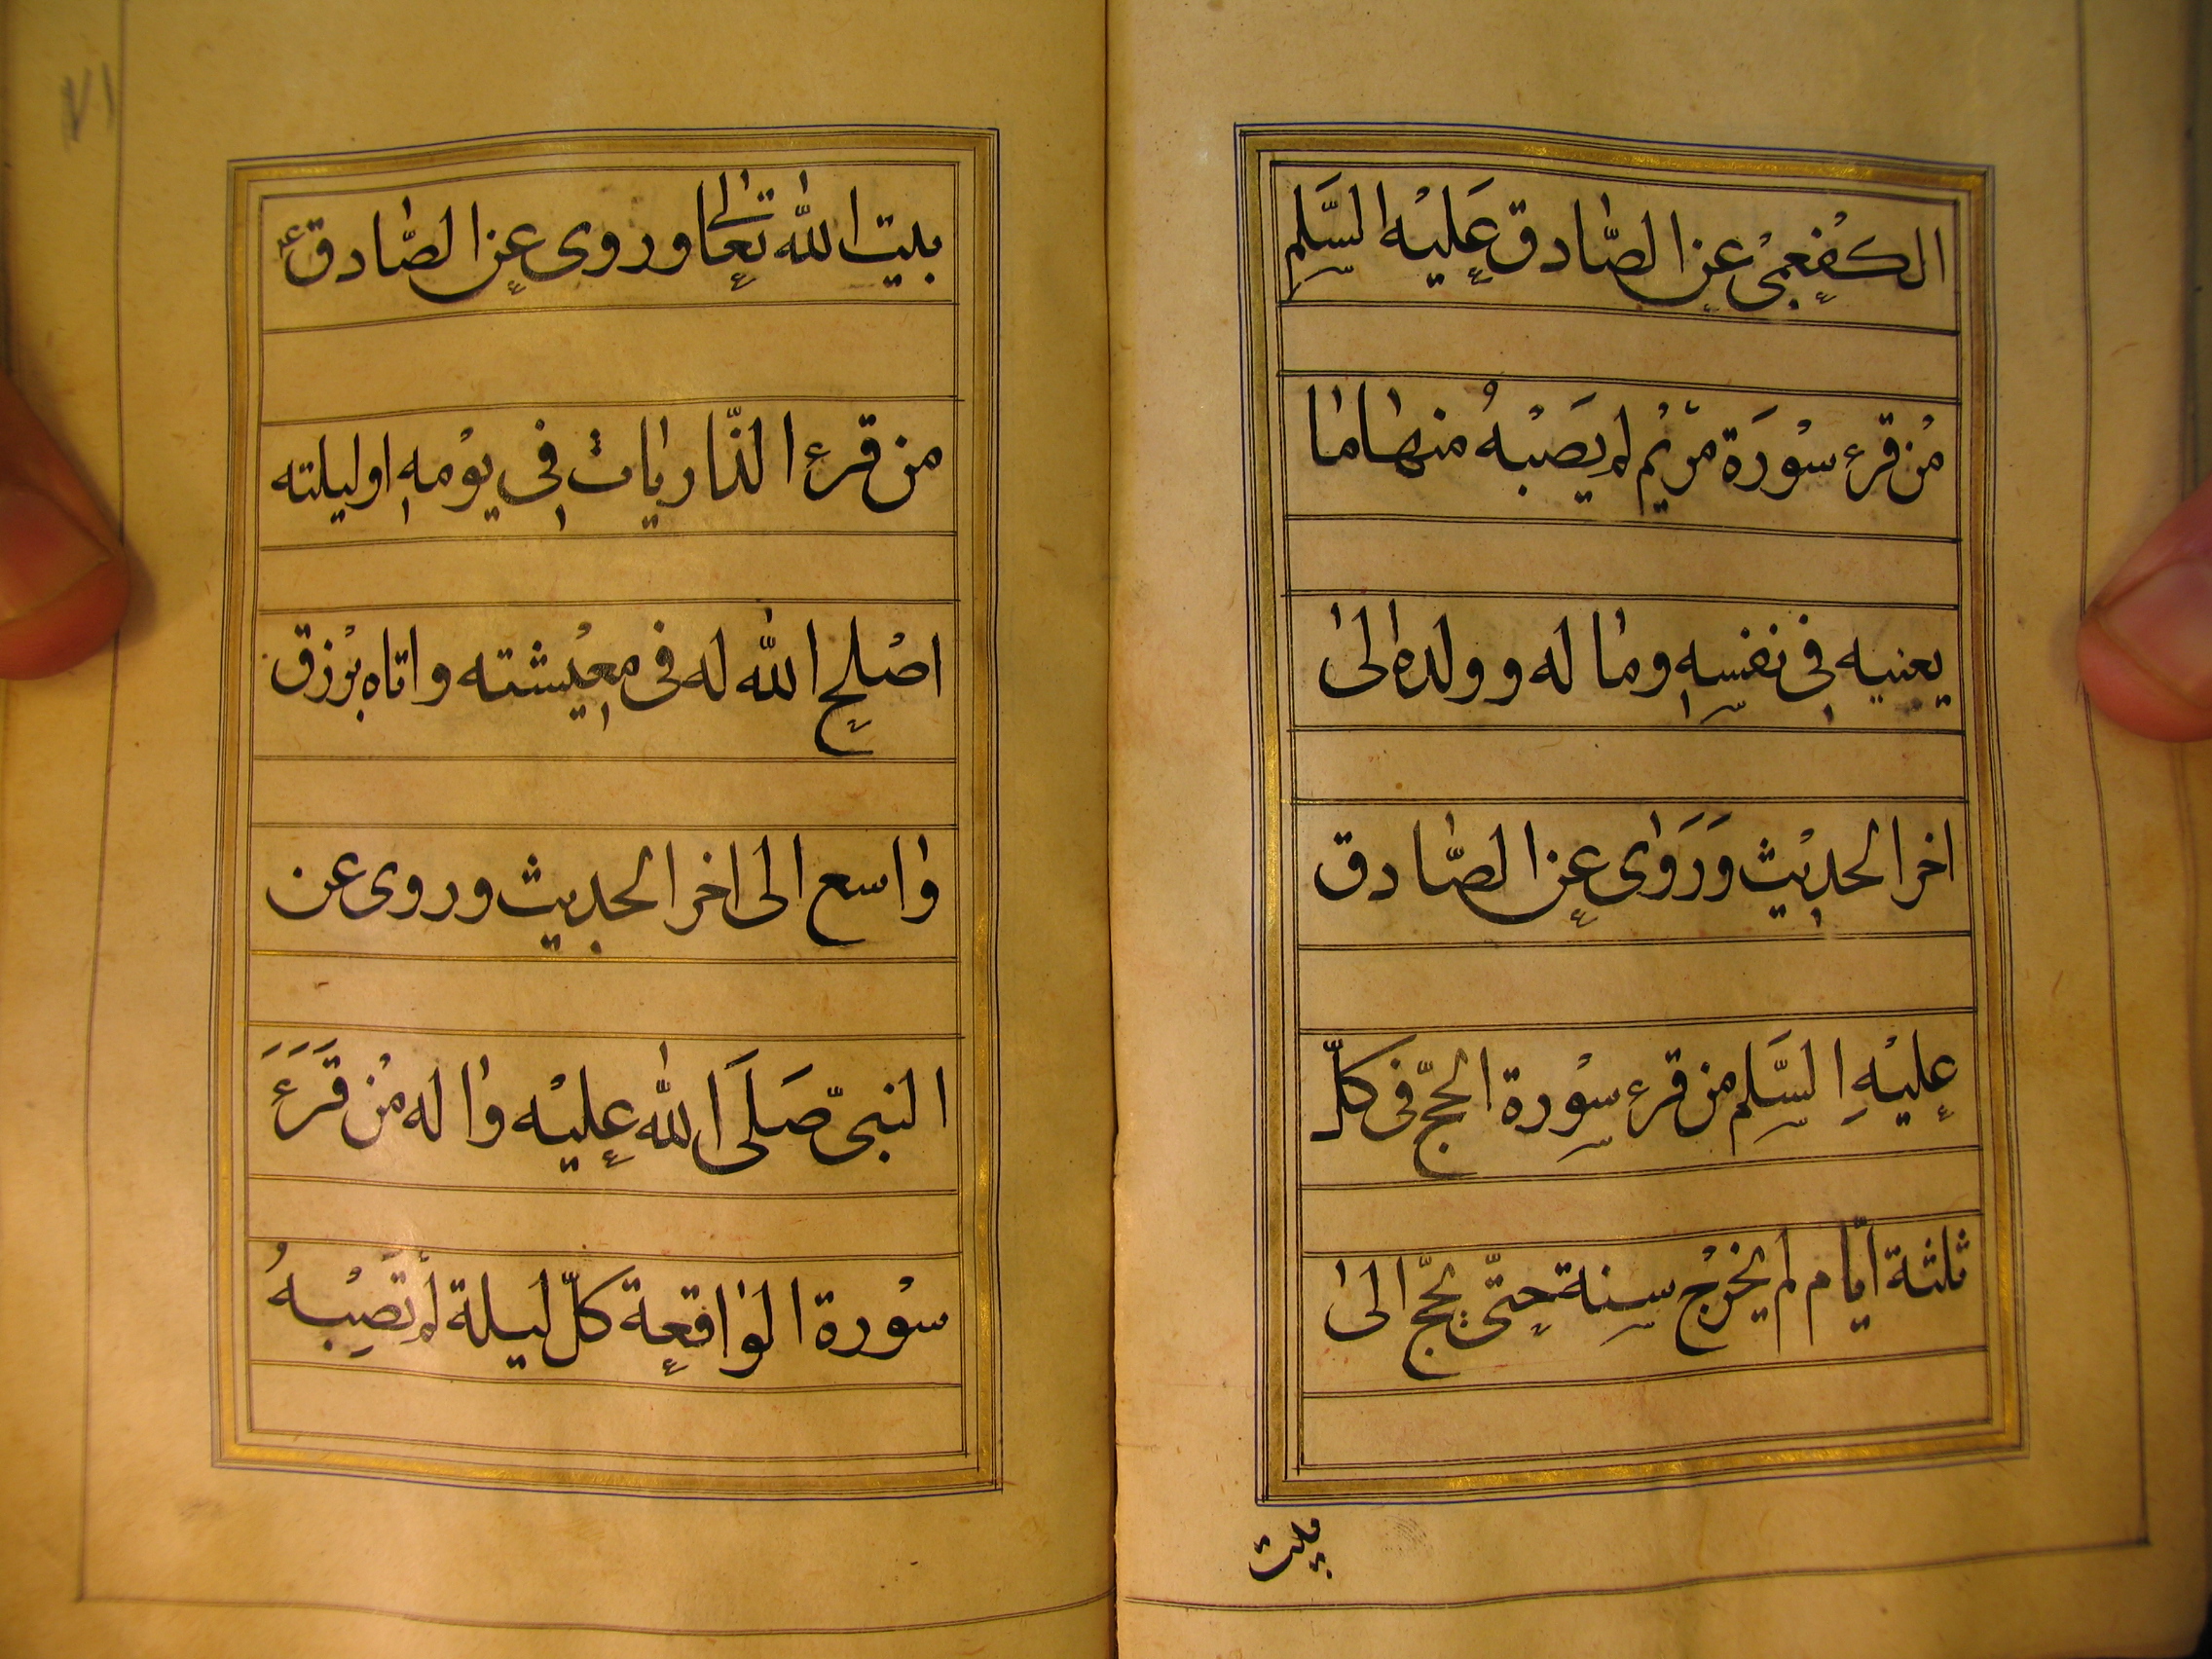 الكفعمی عن الصّادق عَلیْه السَّلم
مْن قرء سْورَة مرْیْم لم یصَبْهُ منها ما
یعنیه فی نفسه وما له وولده الی
اخر الحدیْث وَرَوٰی عن الصّادق
علیْه السَّلم من قرء سْورة الحجّ فی کلّ
ثلثة ایّام لم یخرْج سنة حتّی یحجّ الی
بیت
٧١
بیت الله تعالی وروی عن الصّادق ع
من قرء الذّاریات فی یوْمه اولیلته
اصْلح الله له فی معیْشته واتاه برْزق
واسع الی اخر الحدیث وروی عن
النبیّ صَلَی الله علیْه واله مْن قَرَءَ
سْورة الواقعة کلّ لیلة لم تصَبْهُ